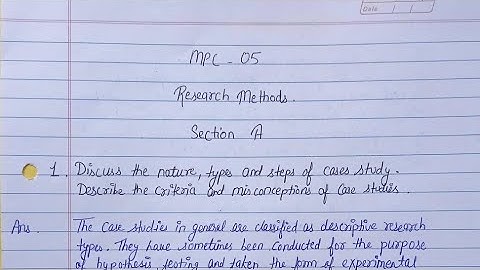 Date
MPC - 05
Research Methods.
Section A
1. Discuss the nature, types and steps of cases study.
Describe the criteria and misconceptions of case studies.
Ans. The case studies in general are classified as descriptive research
types. They have sometimes been conducted for the purpose
of hypothesis, testing and taken the form of experimental